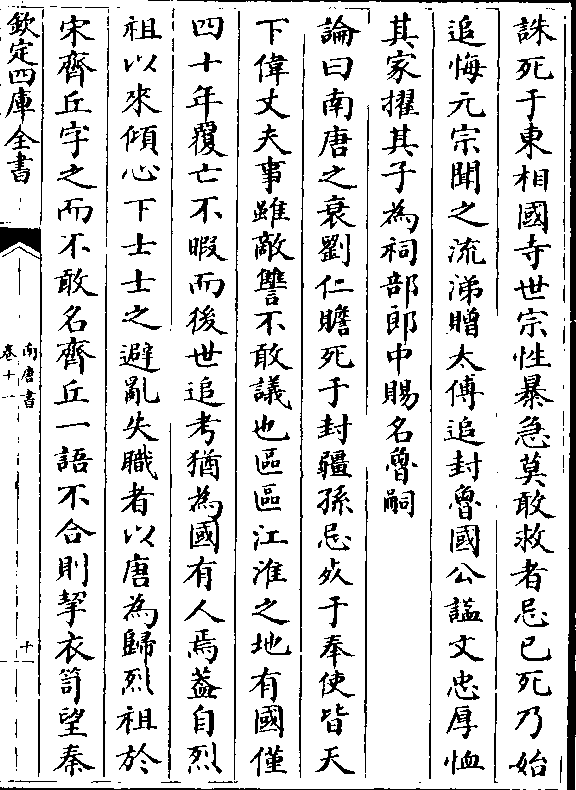 誅死于東相國寺世宗性暴急莫敢救者忌已死乃始
追悔元宗聞之流涕贈太傅追封魯國公諡文忠厚恤
其家擢其子為祠部郎中賜名魯嗣
論曰南唐之衰劉仁贍死于封疆孫忌死于奉使皆天
下偉丈夫事雖敵讐不敢議也區區江淮之地有國僅
四十年覆亡不暇而後世追考猶為國有人焉葢自烈
祖以來傾心下士士之避亂失職者以唐為歸烈祖於
宋齊丘字之而不敢名齊丘一語不合則挈衣笥望秦
欽定四庫全書
南唐書
卷十一
十